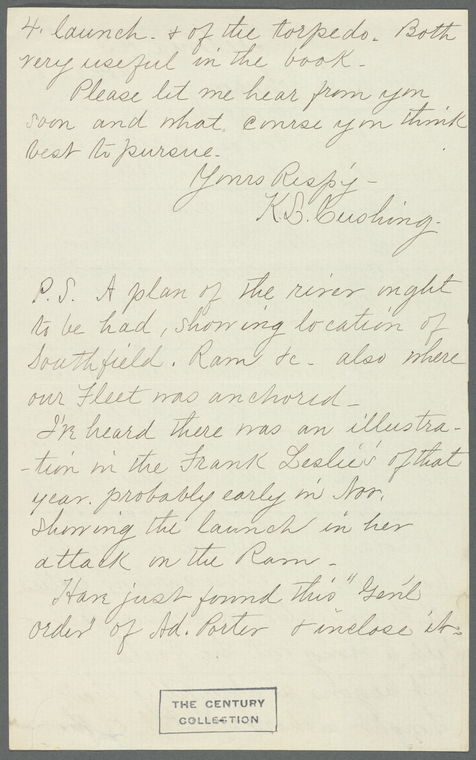 4. launch. & of the torpedo. Both
very useful in the book -
Please let me hear from you
soon and what course you think
best to pursue.
Yours Respy -
K.L. Cushing.
P.S. A plan of the river ought
to be had, showing location of
Southfield. Ram &c - also where
our Fleet was anchored -
I've heard there was an illustra-
-tion in the Frank Leslie's of that
year. probably early in Nov.
showing the launch in her
attack on the Ram -
Have just found this "Gen'l
order" of Ad. Porter & inclose it -
THE CENTURY
COLLECTION